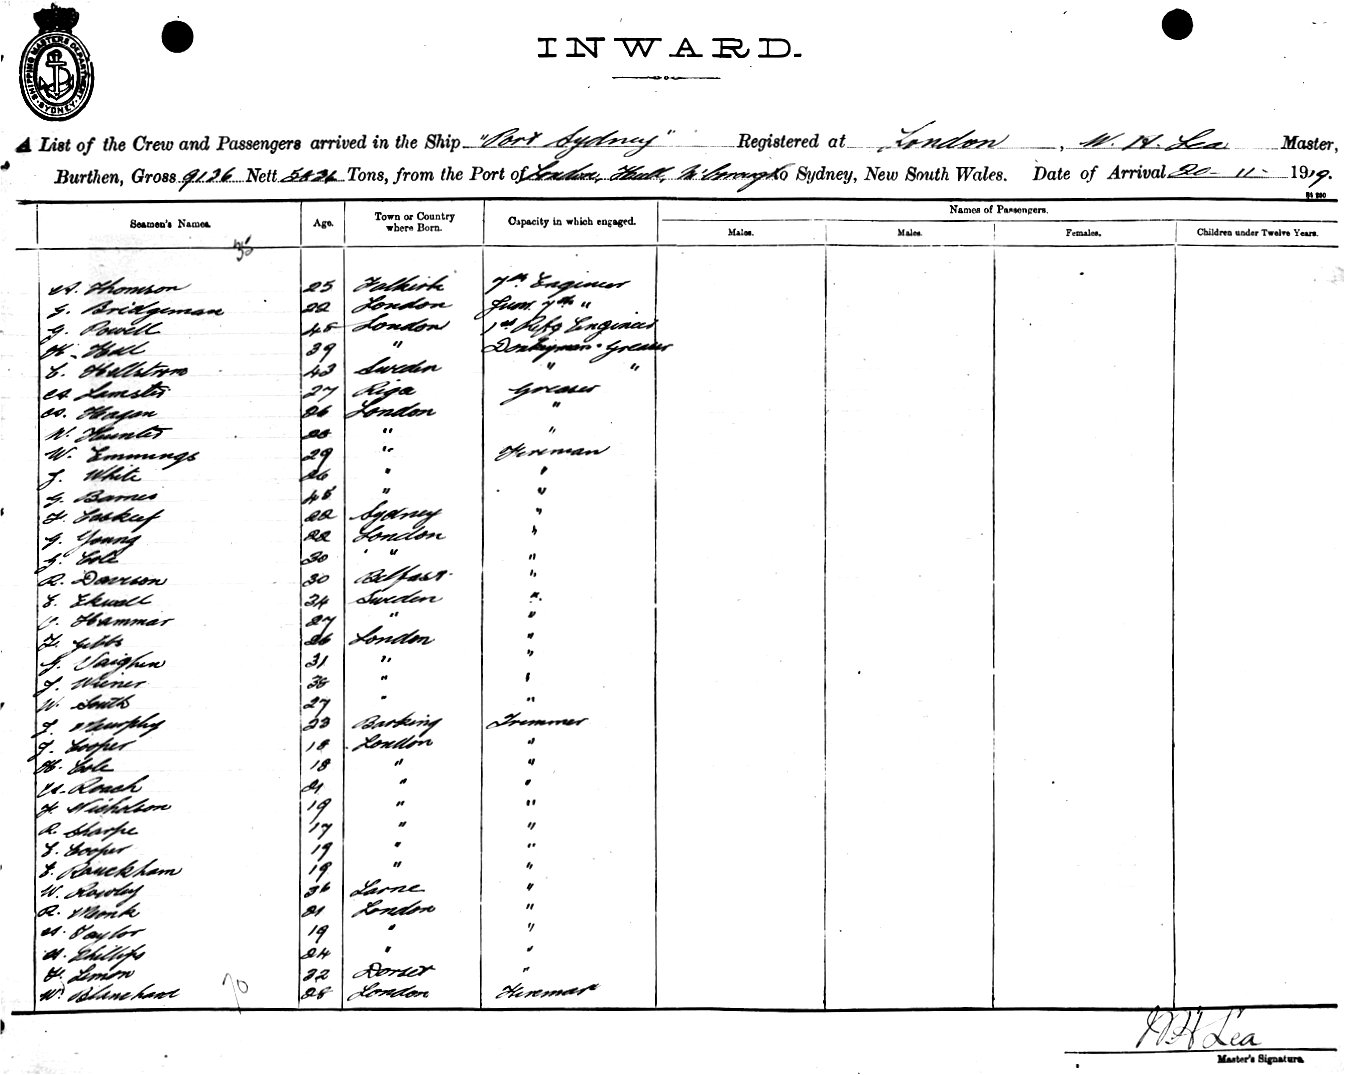 SHIPPING MASTERS DEPARTMENT SYDNEY
INWARD.
A List of the Crew and Passengers arrived in the Ship "Port Sydney" Registered at London, W. H. Lea Master,
Burthen, Gross 9136 Nett Tons, from the Port of London, Hull, to Sydney, New South Wales. Date of Arrival 20-11-1919.
Names of Passengers.
Seamen's Names. Age. Town or Country where Born. Capacity in which engaged. Males. Males. Females. Children under Twelve Years.
35
A. Thomson 25 Falkirk 7th Engineer
G. Bridgeman 22 London Junr. 7th "
G. Powell 45 London 1st Refg Engineer
H. Hall 39 " Donkeyman - Greaser
C. Hallstrom 43 Sweden " "
27 Riga Greaser
A. Hagan 26 London "
W. Hunter " "
W. Emmings 29 " Fireman
J. White 26 " "
G. Barnes 45 " "
22 Sydney "
G. Young 22 London "
G. Cole 30 " "
R. Davison 30 Belfast "
E. Ekwall 34 Sweden "
Hammar 27 " "
F. Gibbs 26 London "
G. 31 " "
J. Wiener 38 " "
W. South 27 " "
J. Murphy 23 Barking Trimmer
J. Cooper 18 London "
H. Cole 18 " "
A. Roach 21 " "
F. Nicholson 19 " "
R. Sharpe 17 " "
E. Cooper 19 " "
E. Rouckham 19 " "
W. Rowley 36 Larne "
R. Monk 21 London "
A. Taylor 19 " "
A. Phillips 24 " "
H. Limon 32 Dorset "
W. Blanchard 28 London Fireman
70
W H Lea
Master's Signature.